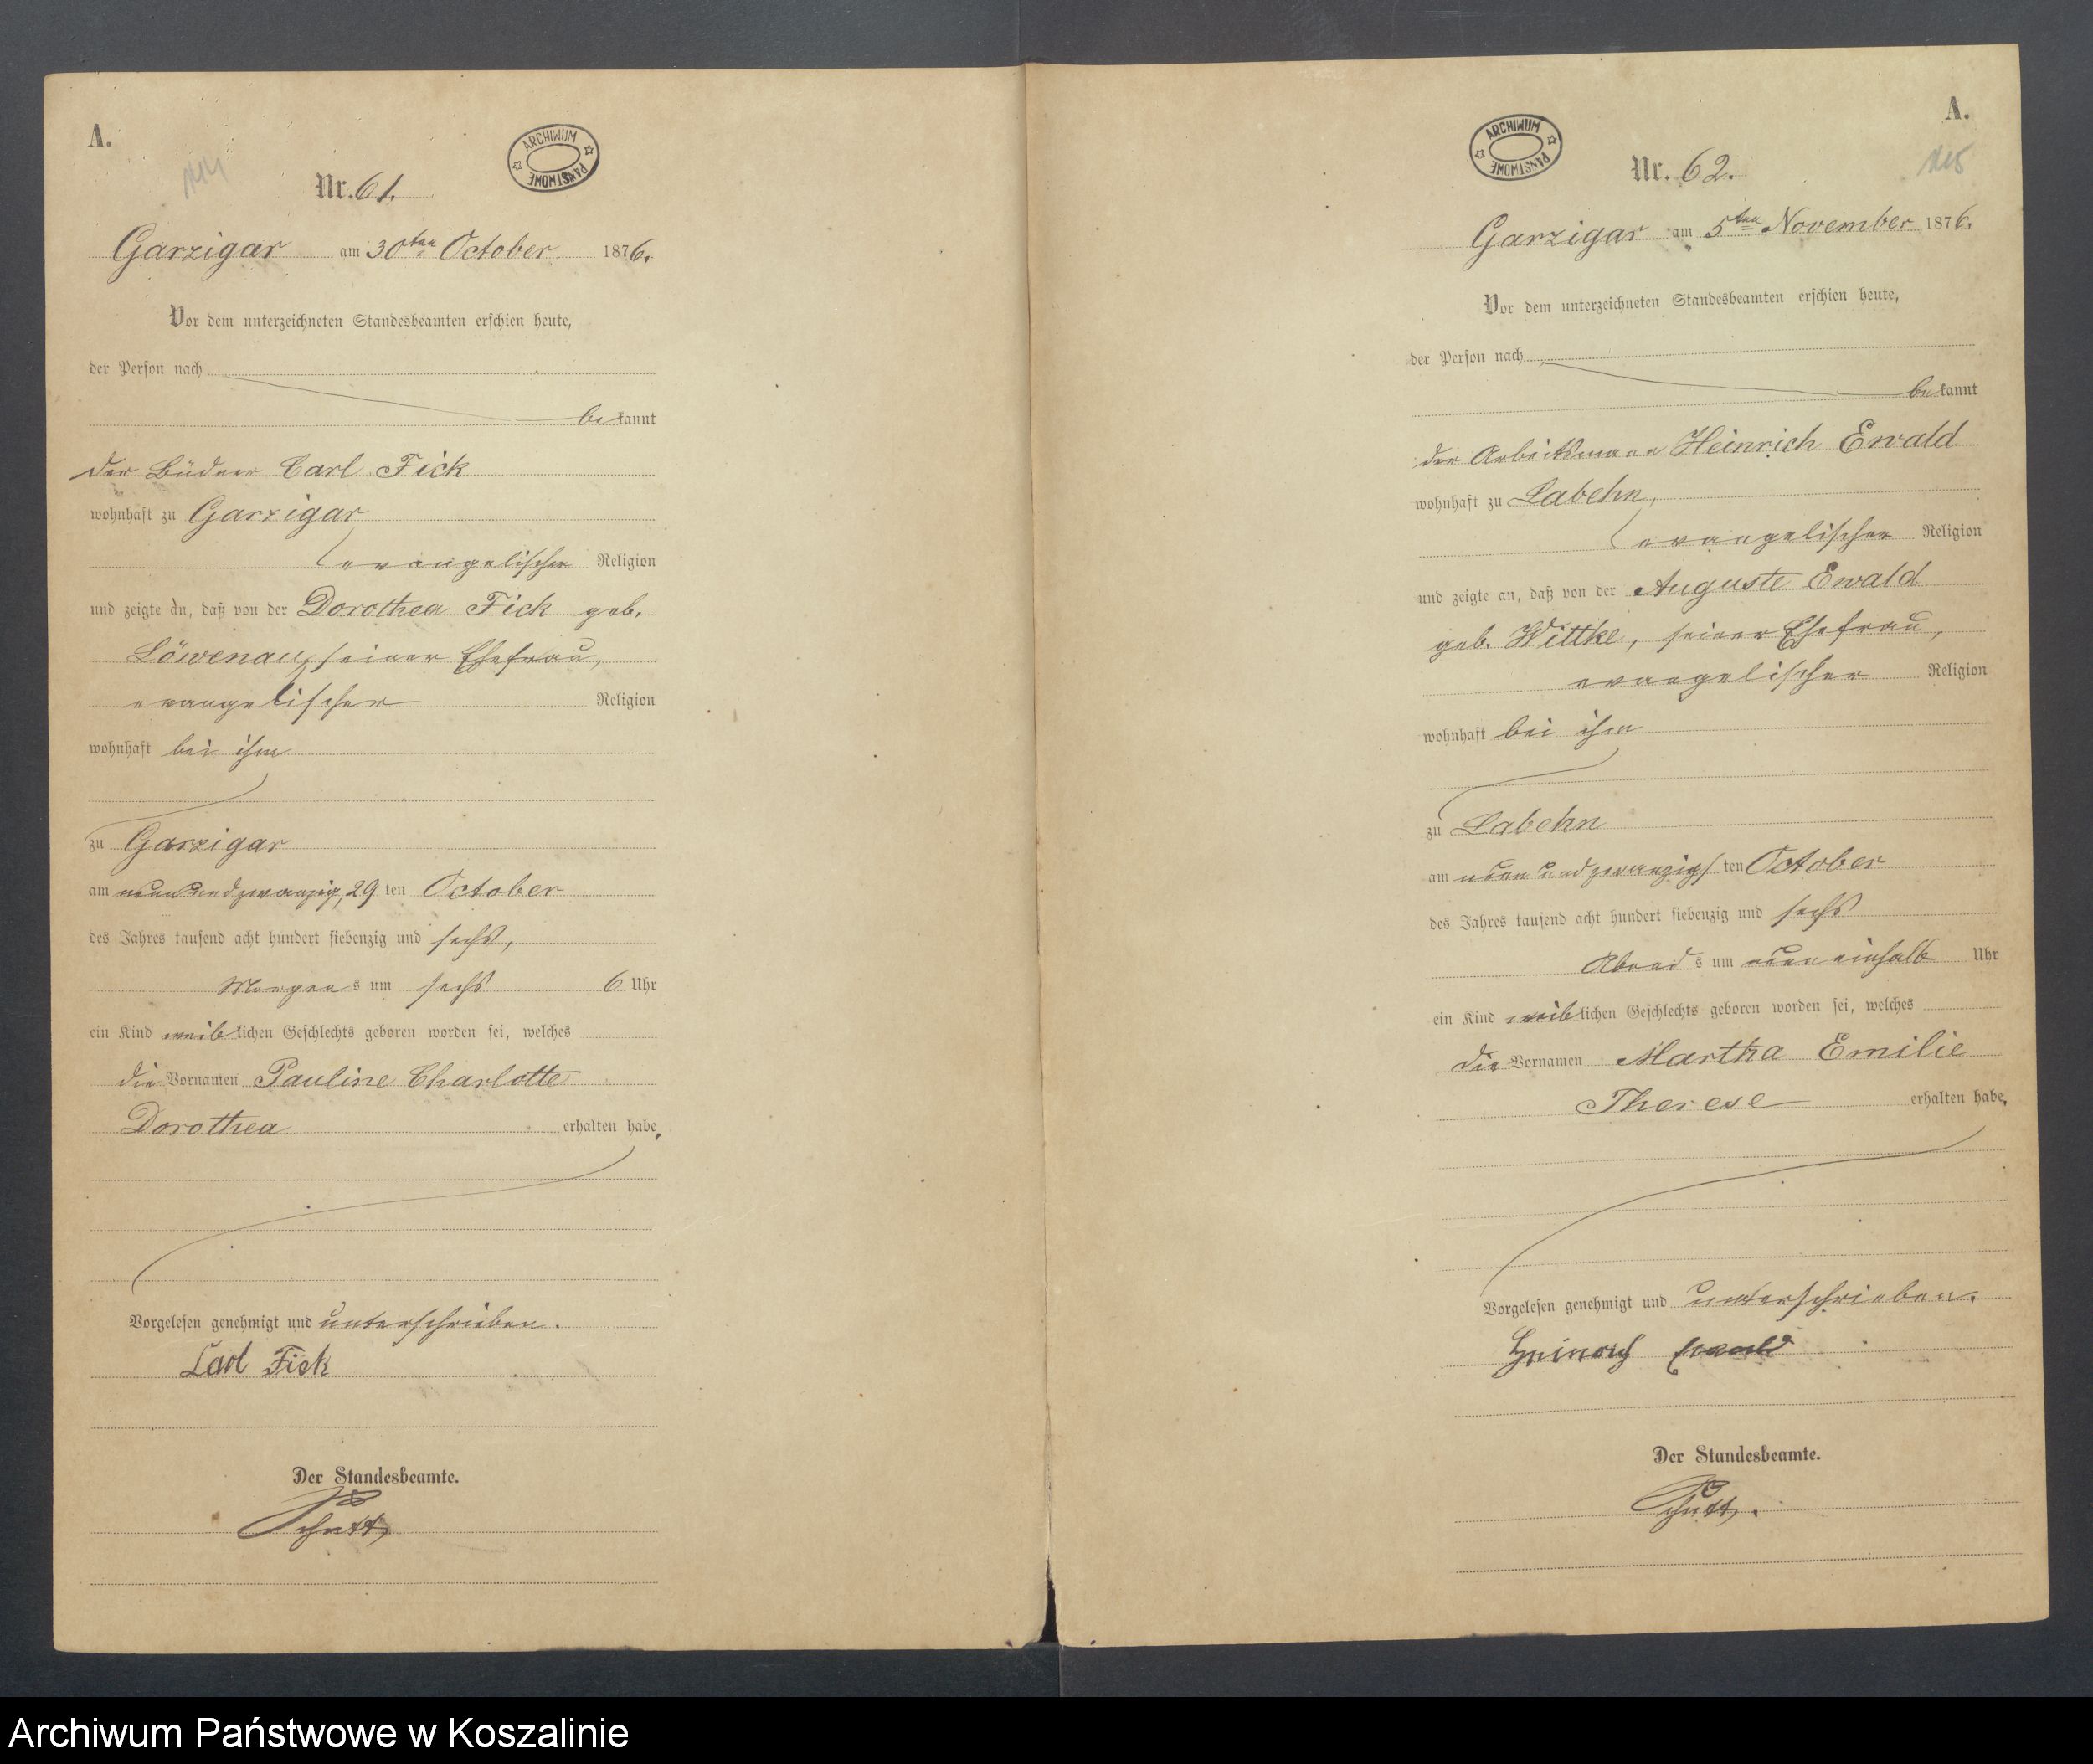 A.
ARCHIWUM PAŃSTWOWE
Nr. 61.
Garzigar am 30ten October 1876.
Vor dem unterzeichneten Standesbeamten erschien heute,
der Person nach
bekannt
der Büdner Carl Fick
wohnhaft zu Garzigar
evangelischer Religion
und zeigte an, daß von der Dorothea Fick geb.
Löwenau, seiner Ehefrau,
evangelischer Religion
wohnhaft bei ihm
zu Garzigar
am neunundzwanzig, 29 ten October
des Jahres tausend acht hundert siebenzig und sechs,
Morgens um sechs 6 Uhr
ein Kind weiblichen Geschlechts geboren worden sei, welches
die Vornamen Pauline Charlotte
Dorothea erhalten habe.
Vorgelesen genehmigt und unterschrieben.
Carl Fick
Der Standesbeamte.
A.
ARCHIWUM PAŃSTWOWE
Nr. 62.
Garzigar am 5ten November 1876.
Vor dem unterzeichneten Standesbeamten erschien heute,
der Person nach
bekannt
der Arbeitsmann Heinrich Ewald
wohnhaft zu Labehn,
evangelischer Religion
und zeigte an, daß von der Auguste Ewald
geb. Wittke, seiner Ehefrau,
evangelischer Religion
wohnhaft bei ihm
zu Labehn
am neunundzwanzigsten October
des Jahres tausend acht hundert siebenzig und sechs
Abends um neuneinhalb Uhr
ein Kind weiblichen Geschlechts geboren worden sei, welches
die Vornamen Martha Emilie
Therese erhalten habe.
Vorgelesen genehmigt und unterschrieben.
Heinrich Ewald
Der Standesbeamte.
Archiwum Państwowe w Koszalinie